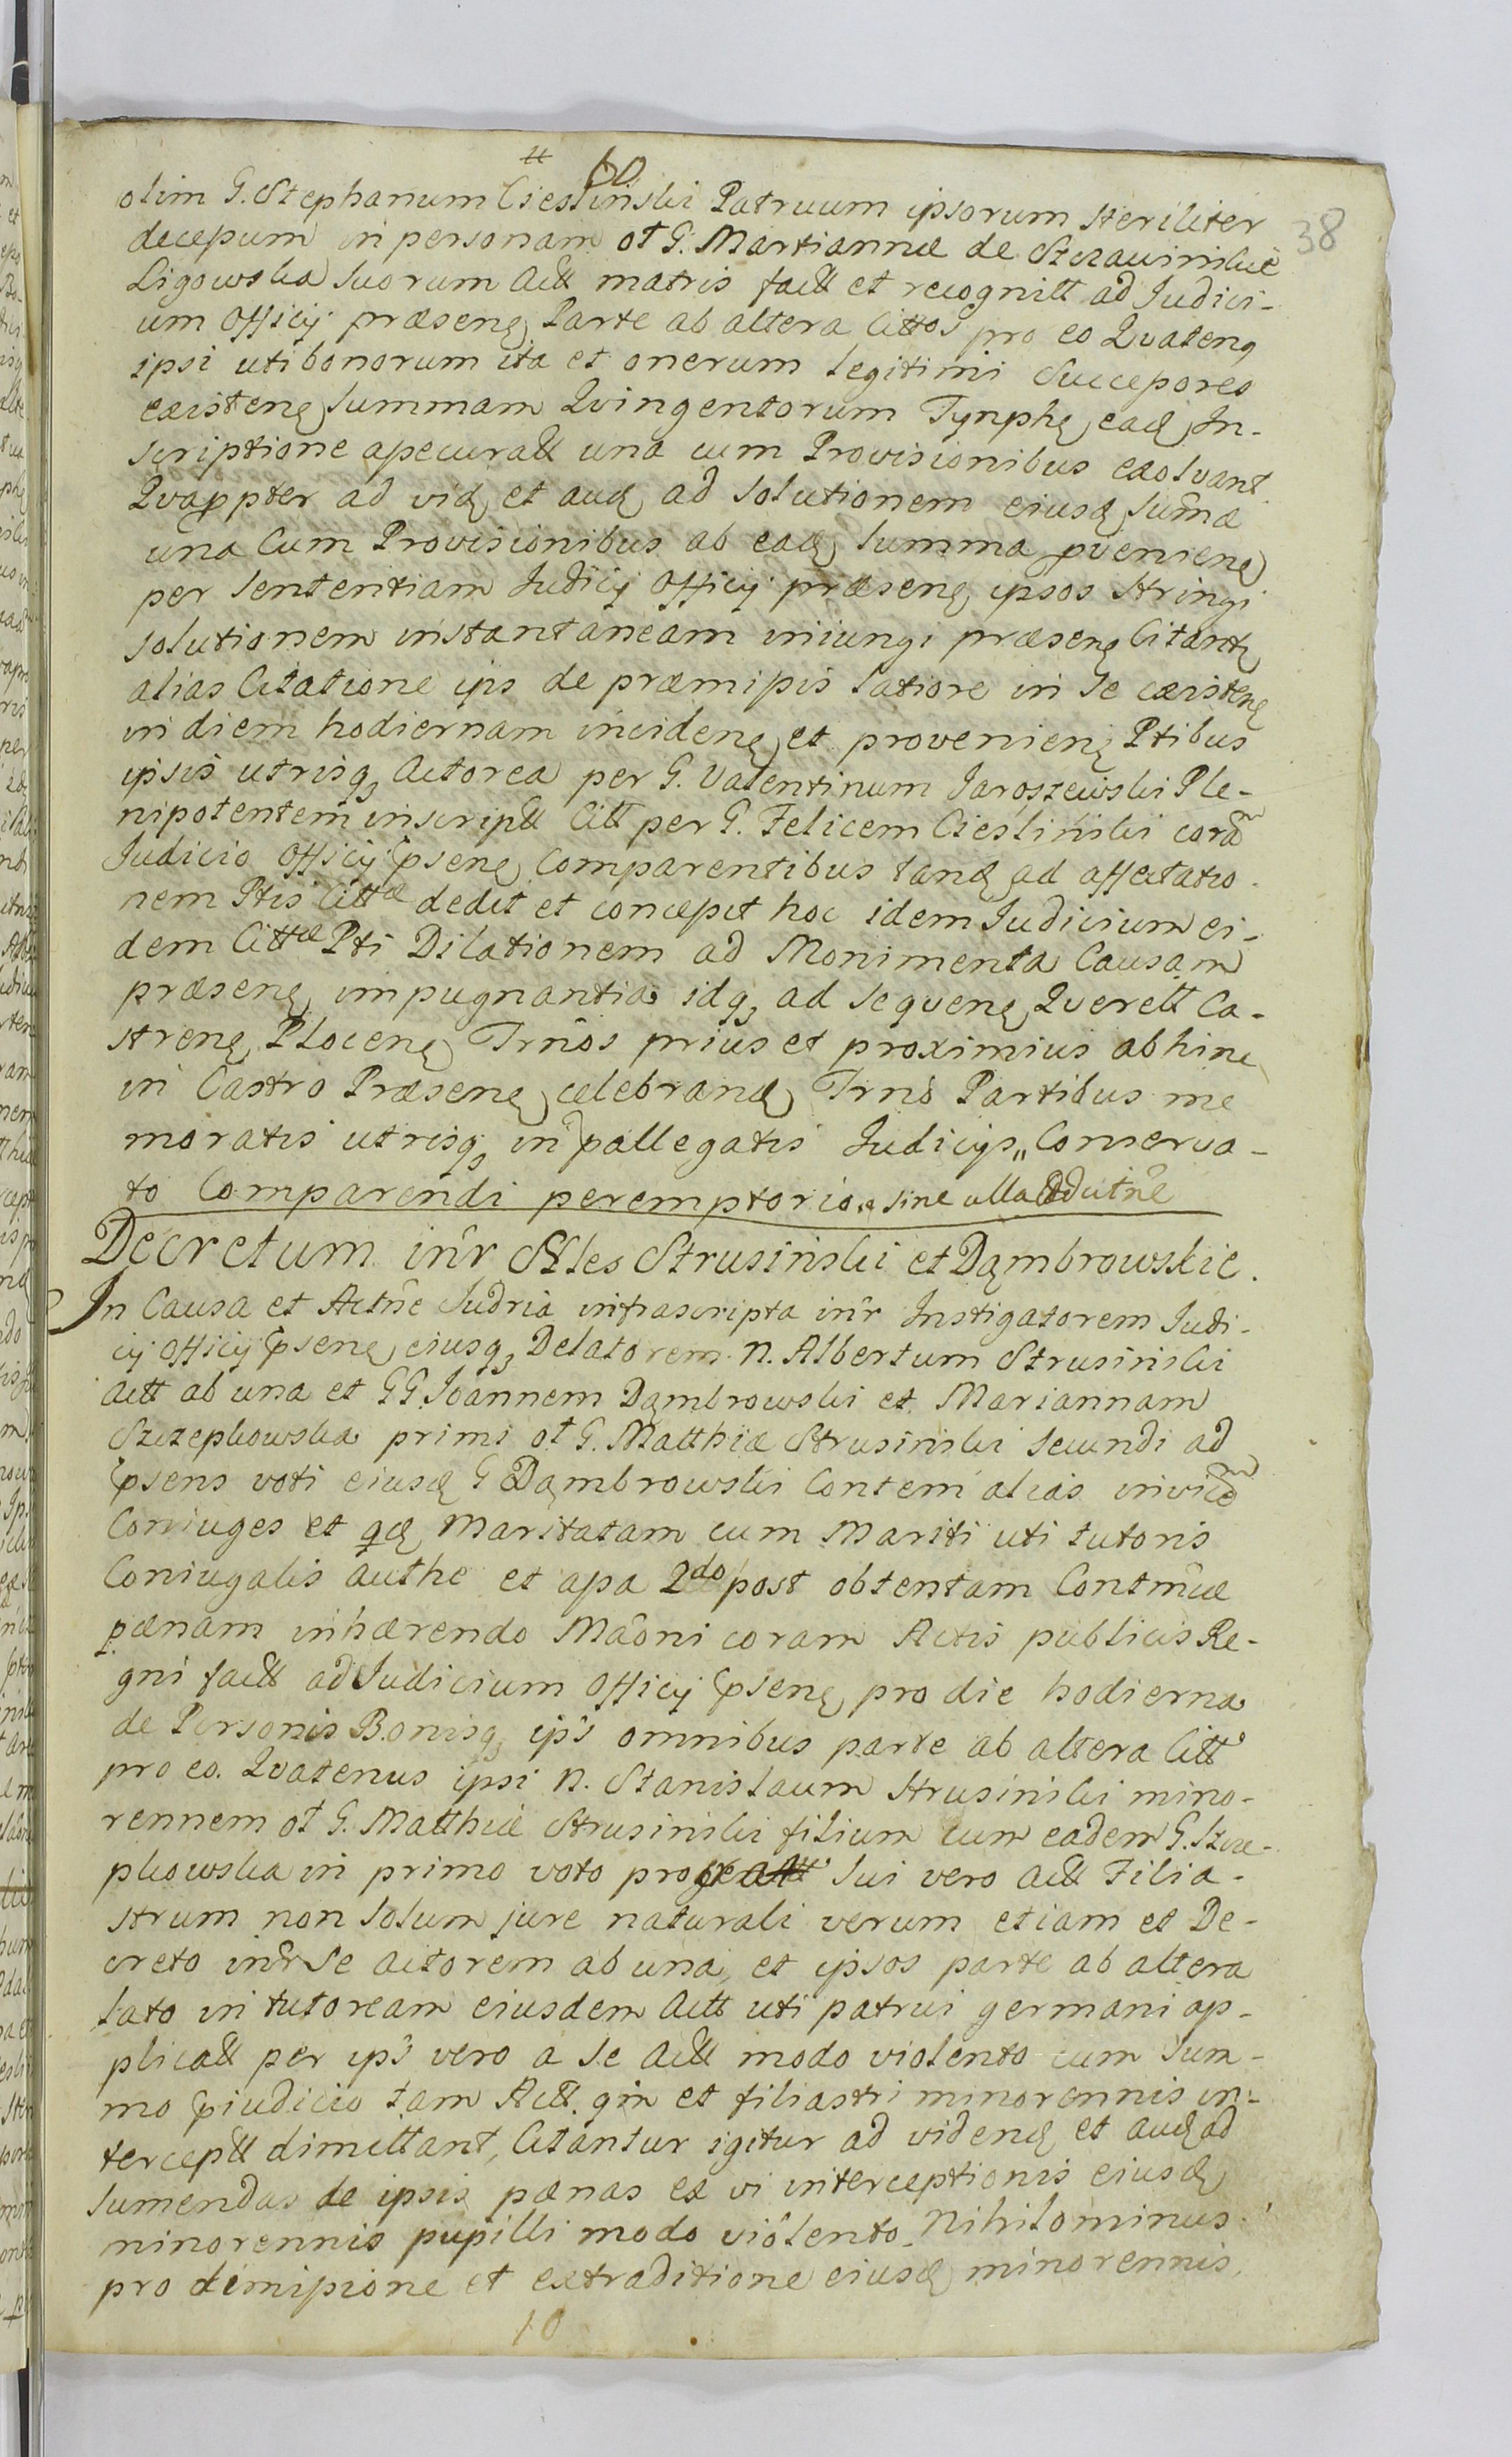 60
38
olim G. Stephanum Ciesliński Patruum ipsorum steriliter
decessum in personam ol G. Martiannæ de Szczawińskie
Ligowska suorum Actt matris factt et recognitt ad Judici-
um Officij præsenę Parte ab altera Cittos pro eo Qvatenq
ipsi uti bonorum ita et onerum legitimi Successores
existenę Summam Qvingentorum Tynphę eadę In-
scriptione assecuratt una cum Provisionibus exolvant
Qvappter ad vidę et audę ad solutionem eiusdę Sum̃æ
una Cum Provisionibus ab eadę Summa pvenienę
per Sententiam Judicij Officij præsenę ipsos Stringi
solutionem instantaneam iniungi præsenę Citantę
alias Citatione ips de præmissis latiore in Se existenę
in diem hodiernam incidenę et provenienę Ptibus
ipsis utrisq3 Actorea per G. Valentinum Jaroszewski Ple-
nipotentem inscriptt Citt per G. Felicem Ciesliński corã
Judicio Officij psenę Comparentibus tandę ad affectatio-
nem Ptis Cittæ dedit et concessit hoc idem Judicium ei-
dem Cittæ Pti Dilationem ad Monimenta Causam
præsenę impugnantia idq3 ad seqvenę Qverell Ca-
strenę Plocenę Trnõs prius et proximius abhinc
in Castro Præsenę celebrandę Trnõ Partibus me
moratis utrisq3 in pallegatis Judicijs „ Conserva-
to Comparendi peremptorio „ sine ulla Adcitñe
Decretum inr̃ Nles Strusiński et Dąmbrowskie.
In Causa et Actñe Judria infrascripta inr̃ Instigatorem Judi-
cij Officij psenę eiusq3 Delatorem N. Albertum Strusiński
Actt ab una et GG. Joannem Dąmbrowski et Mariannam
Szczepkowska primi ol G. Matthiæ Strusiński secundi ad
psens voti eiusdę G Dąmbrowski Contem alias invicẽ
Coniuges et qdę Maritatam cum Mariti uti tutoris
Coniugalis authe et assa 2do post obtentam Contm̃æ
pænam inhærendo Mãoni coram Actis publicis Re-
gni factt ad Judicium Officij psenę pro die hodierna
de Personis Bonisq3 ips omnibus parte ab altera Citt
pro eo. Qvatenus ipsi N. Stanislaum Strusiński mino-
rennem ol G. Matthiæ Strusiński filium cum eadem G. Szcze-
pkowska in primo voto progenitt sui vero Actt Filia-
strum non solum jure naturali verum etiam et De-
creto inr̃ Se actorem ab una, et ipsos parte ab altera
lato in tutoream eiusdem Actt uti patrui germani ap-
plicatt per ips vero a se Actt modo violento cum Sum-
mo pjudicio tam Actt. qm et filiastri minorennis in-
terceptt dimittant, Citantur igitur ad videndę et audę ad
sumendas de ipsis pænas ex vi interceptionis eiusdę
minorennis pupilli modo violento. Nihilominus
pro dimissione et extraditione eiusdę minorennis
10